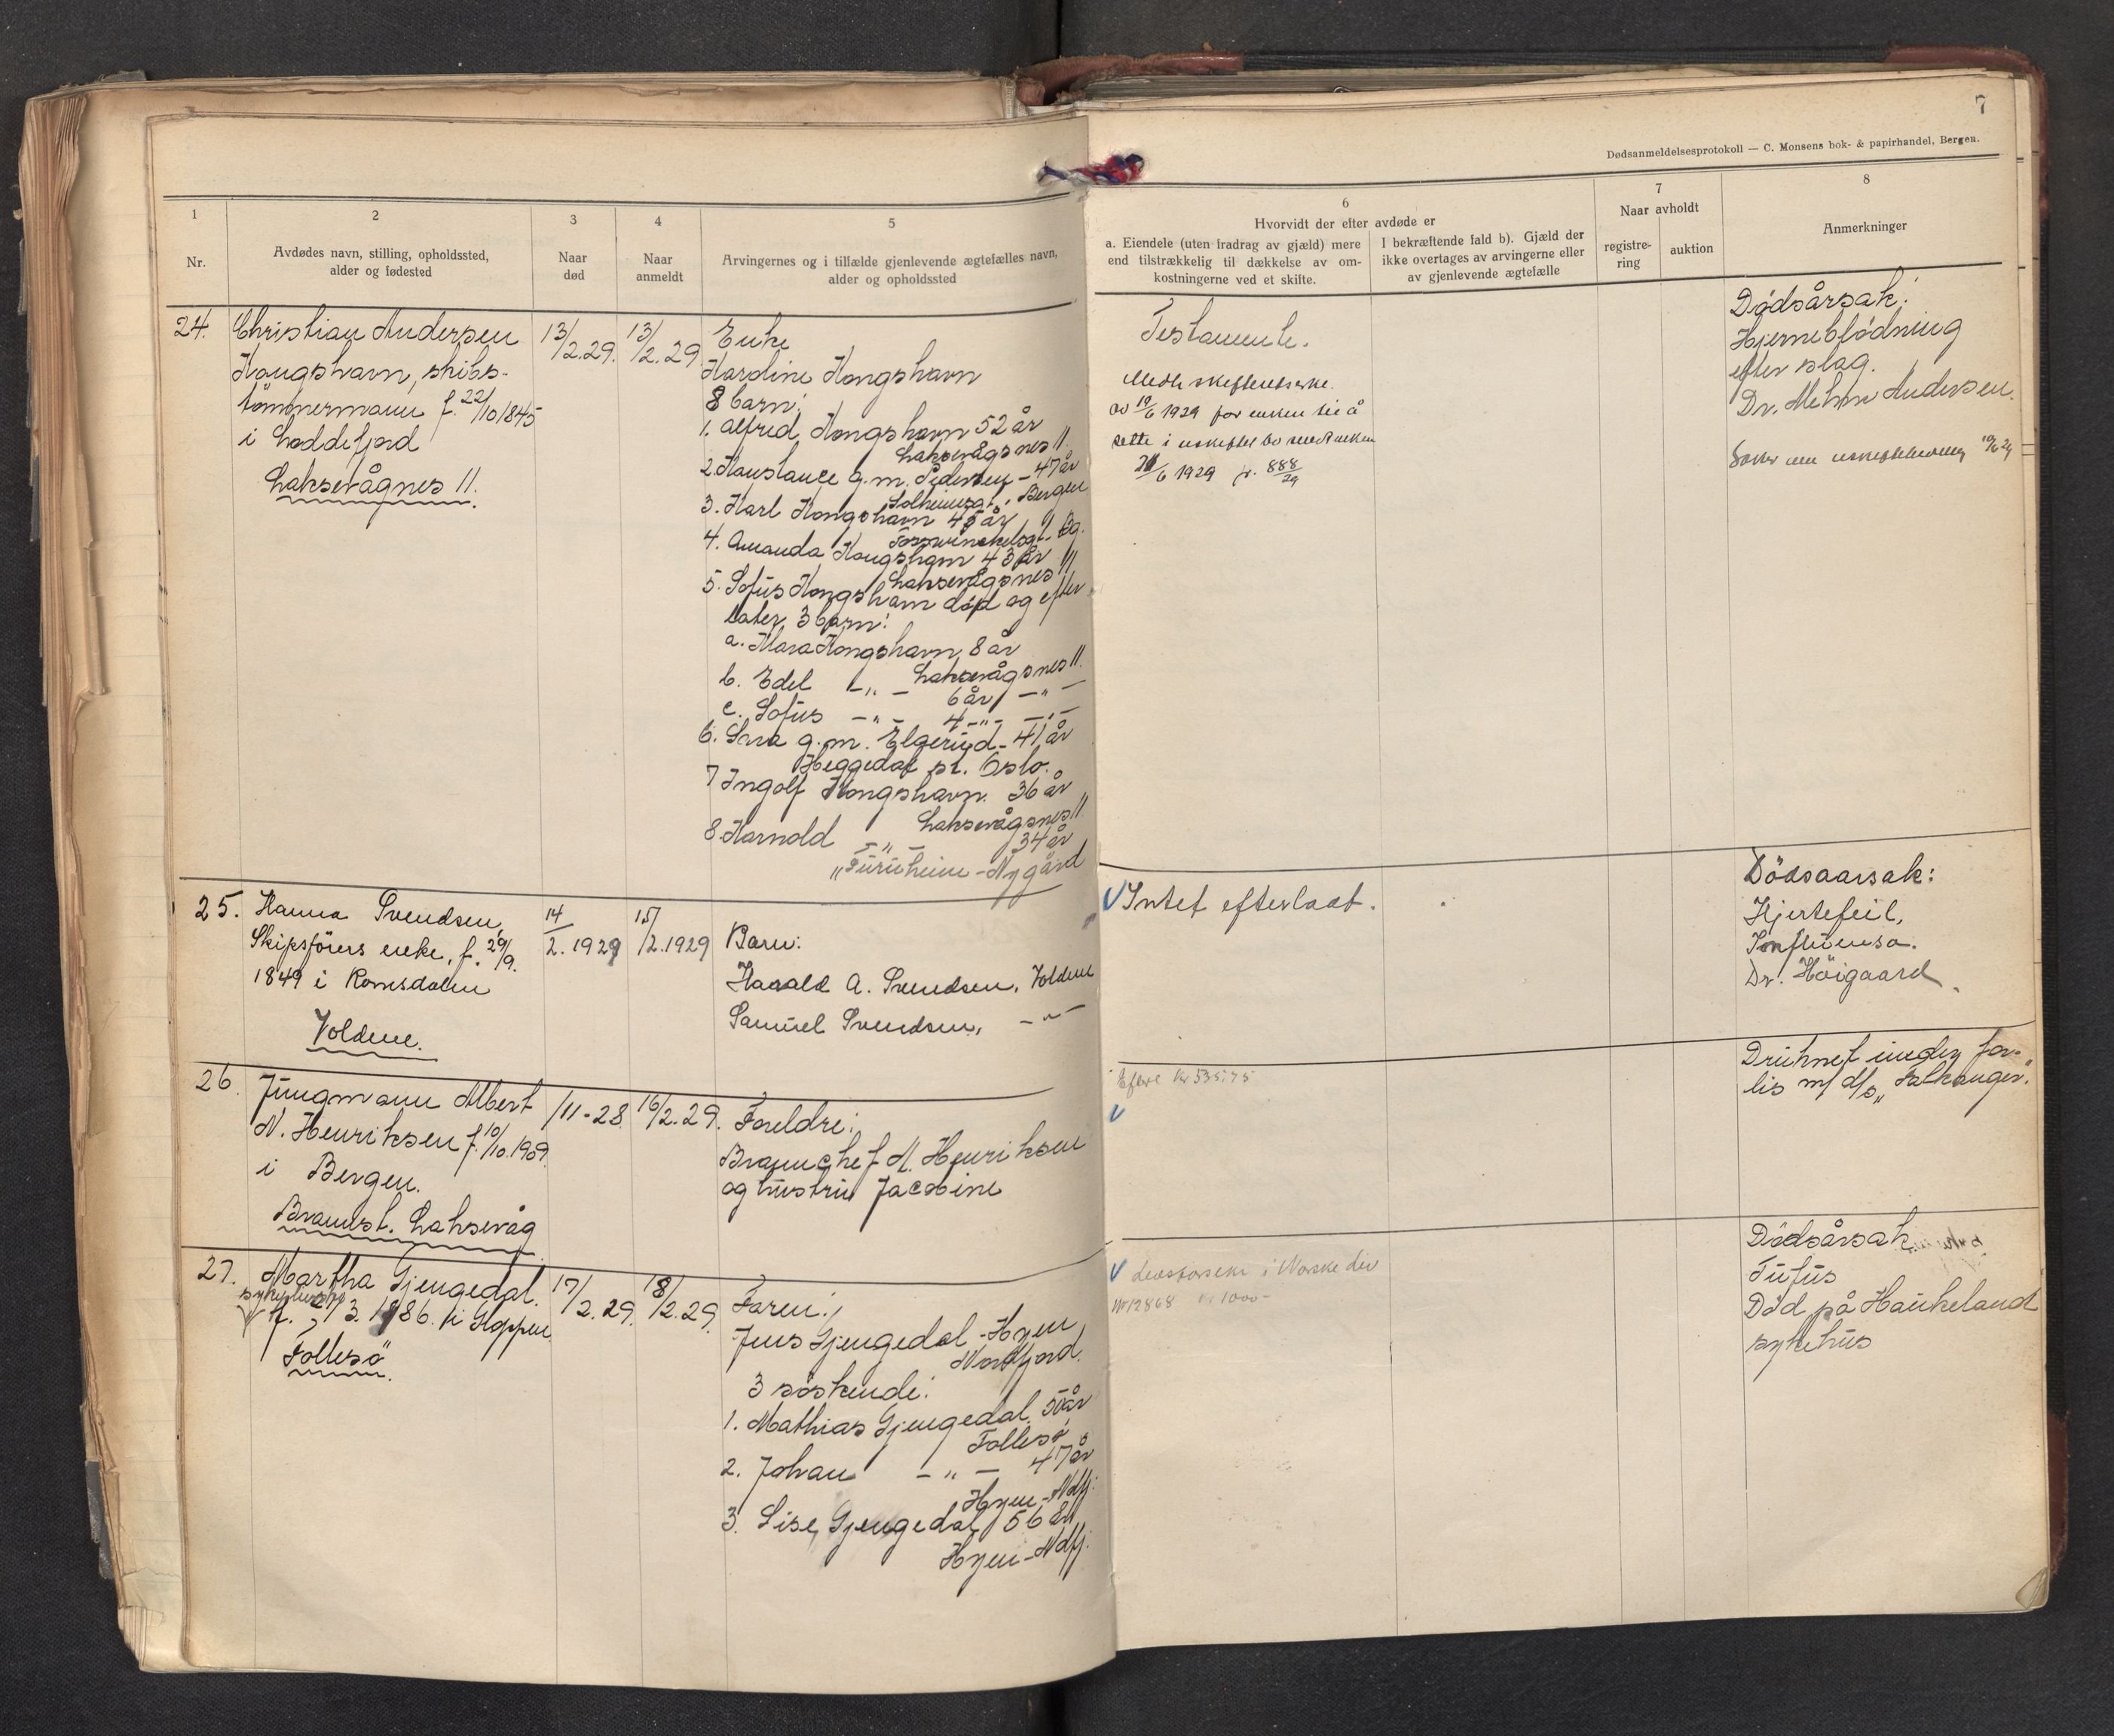 7
Dødsanmeldelsesprotokoll — C. Monsens bok- & papirhandel, Bergen.
1
Nr.
2
Avdødes navn, stilling, opholdssted,
alder og fødested
3
Naar
død
4
Naar
anmeldt
5
Arvingernes og i tilfælde gjenlevende ægtefælles navn,
alder og opholdssted
6
Hvorvidt der efter avdøde er
a. Eiendele (uten fradrag av gjæld) mere
end tilstrækkelig til dækkelse av om-
kostningerne ved et skifte.
I bekræftende fald b). Gjæld der
ikke overtages av arvingerne eller
av gjenlevende ægtefælle
7
Naar avholdt
registre-
ring
auktion
8
Anmerkninger
24.
Christian Andersen
Kongshavn, skibs-
tömmermann f. 22/10 1845
i Loddefjord
Laksevågnes 11.
13/2.29.
13/2.29
Enke
Kardine Kongshavn
8 barn:
1. Alfred Kongshavn 52 år
Laksevågsnes 11.
2. Konstance g.m. Pedersen - 47 år
Solheimsgt. Bergen
3. Karl Kongshavn 45 år
Bg.
4. Amanda Kongshavn 43 år
Laksevågsnes 11
5. Sofus Kongshavn död og efter
later 3 barn:
a. Klara Kongshavn 8 år
Laksevågsnes 11.
b. Edel -„- 6 år -„-
c. Sofus -„- 4 -„- -„-
6. g.m. Elgerud - 41 år
Heggedal st. Oslo.
7 Ingolf Kongshavn 36 år
Laksevågsnes 11
8. Harnold -„- 34 år
„Furuheim - Nygård
Testamente.
av 19/6 1929 for enken til å
sitte i uskiftet bo
21/6 1929 jr. 888/29
Dødsårsak:
Hjerneblødning
efter slag.
Dr. Mehn Andersen.
25.
Hanna Svendsen,
Skipsförers enke, f. 29/9.
1849 i Romsdalen
Voldene.
14/2.1929
15/2.1929
Barn:
Harald A. Svendsen, Voldene
Samuel Svendsen, -„-
Intet efterlaat.
Dödsaarsak:
Hjertefeil,
Influensa.
Dr. Höigaard.
26.
Jungmann Albert
N. Henriksen f. 10/10.1909
i Bergen.
Brannst. Laksevåg
/11-28.
16/2.29.
Foreldre:
Brannchef N. Henriksen
og hustru Jacobine
Kr 535.75
Druknet under for-
lis m/ d/s „Salkanger".
27.
Martha Gjengedal.
sykepleierske
f. 27/3. 1886. i Gloppen
Follesö.
17/2.29.
18/2.29.
Faren:
Jens Gjengedal - Hyen
Nordfjord.
3 söskende:
1. Mathias Gjengedal 50 år
Follesö
2. Johan -„- 47 år
Hyen-Ndfj.
3. Lise Gjengedal 56 år
Hyen-Ndfj.
Livsforsikr i Norske Liv
Nr 12868 Kr 1000-
Dödsårsak
Tufus
Död på Haukeland
sykehus